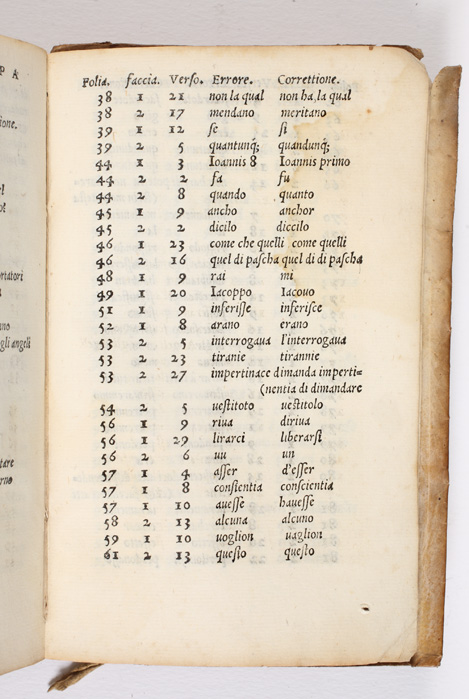 P A
ione.
ortatori
gli angeli
tare
Folia. faccia. Verso. Errore. Correttione.
38 1 21 non la qual non ha la qual
38 2 17 mendano meritano
39 1 12 se si
39 2 5 quantunq; quandunq;
44 1 3 Ioannis 8 Ioannis primo
44 2 2 fa fu
44 2 8 quando quanto
45 1 9 ancho anchor
45 2 2 dicilo diccilo
46 1 23 come che quelli come quelli
46 2 16 quel di pascha quel di di pascha
48 1 9 rai mi
49 1 20 Iacoppo Iacouo
51 1 9 inferisse inferisce
52 1 8 arano erano
53 2 5 interrogaua l'interrogaua
53 2 23 tiranie tirannie
53 2 27 impertinace dimanda imperti=
(nentia di dimandare
54 2 5 uestitoto uestitolo
56 1 9 riua diriua
56 1 29 lirarci liberarsi
56 2 6 uu un
57 1 4 asser d'esser
57 1 8 consientia conscientia
57 1 10 auesse hauesse
58 2 13 alcuna alcuno
59 1 10 uoglion uaglion
61 2 13 questo questo